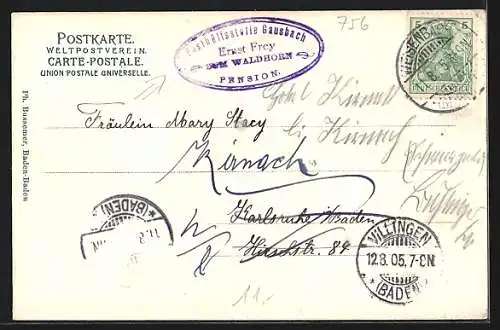 756
POSTKARTE.
WELTPOSTVEREIN.
CARTE-POSTALE.
UNION POSTALE UNIVERSELLE.
Posthülfsstelle Gausbach
Ernst Frey
ZUM WALDHORN
PENSION.
5
Ph. Bussemer, Baden-Baden
Hotel Kirnach
Fräulein Mary Stacy
bei Kirnach
Kirnach
Karlsruhe Baden
Hirschstr. 84
(BADEN)
VILLINGEN
12.8.05.7-8N.
(BADEN)
11.-